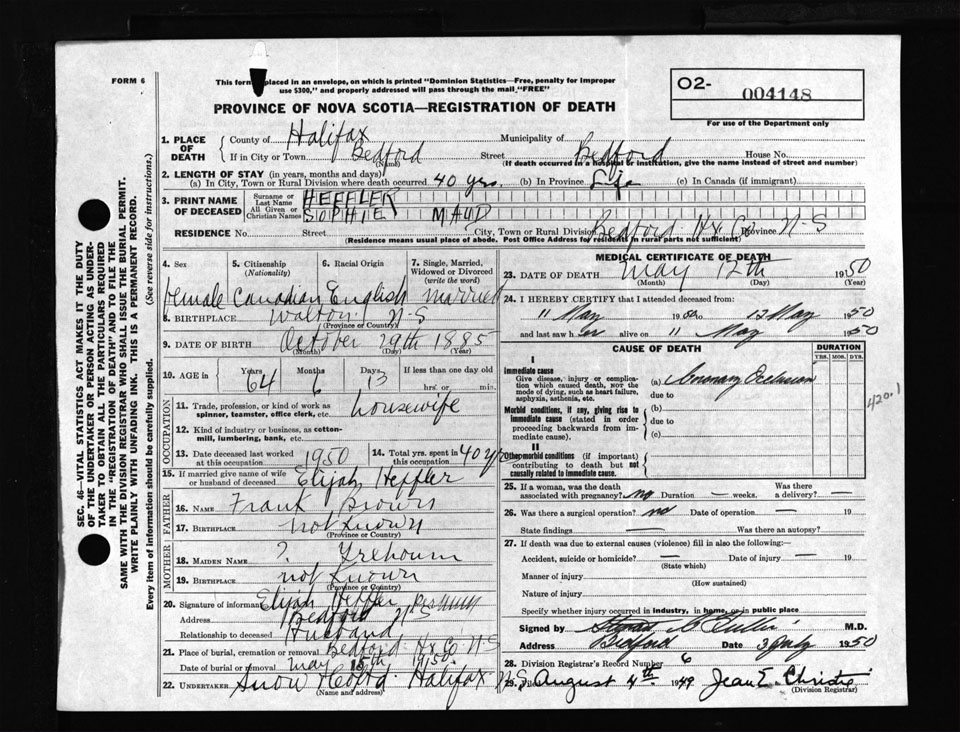 FORM 6
This form placed in an envelope, on which is printed "Dominion Statistics—Free, penalty for improper
use $300," and properly addressed will pass through the mail, "FREE"
PROVINCE OF NOVA SCOTIA—REGISTRATION OF DEATH
O2- 004148
For use of the Department only
1. PLACE OF DEATH
County of Halifax Municipality of
If in City or Town Bedford Street Bedford House No.
(Name) (If death occurred in a hospital or institution, give the name instead of street and number)
2. LENGTH OF STAY (in years, months and days)
(a) In City, Town or Rural Division where death occurred 40 yrs. (b) In Province Life (c) In Canada (if immigrant)
3. PRINT NAME OF DECEASED
Surname or Last Name HEFFLER
All Given or Christian Names SOPHIE MAUD
RESIDENCE No. Street City, Town or Rural Division Bedford Hx Co Province N-S
(Residence means usual place of abode. Post Office Address for residents in rural parts not sufficient)
4. Sex 5. Citizenship (Nationality) 6. Racial Origin 7. Single, Married, Widowed or Divorced (write the word)
female Canadian English married
8. BIRTHPLACE Walton N-S
(Province or Country)
9. DATE OF BIRTH October 29th 1885
(Month) (Day) (Year)
10. AGE in Years Months Days If less than one day old
64 6 13 hrs. or min.
OCCUPATION
11. Trade, profession, or kind of work as spinner, teamster, office clerk, etc. housewife
12. Kind of industry or business, as cotton-mill, lumbering, bank, etc.
13. Date deceased last worked at this occupation 1950 14. Total yrs. spent in this occupation 40 yrs
15. If married give name of wife or husband of deceased Elijah Heffler
FATHER
16. NAME Frank Brown
17. BIRTHPLACE not known
(Province or Country)
MOTHER
18. MAIDEN NAME ?
19. BIRTHPLACE not known
(Province or Country)
20. Signature of informant Elijah Heffler
Address Bedford N S
Relationship to deceased Husband
21. Place of burial, cremation or removal Bedford Hx Co. N-S
Date of burial or removal May 15th 1950
22. UNDERTAKER Snow Halifax N-S
(Name and address)
MEDICAL CERTIFICATE OF DEATH
23. DATE OF DEATH May 12th 1950
(Month) (Day) (Year)
24. I HEREBY CERTIFY that I attended deceased from:
11 May 1950 to 12 May 1950
and last saw her alive on 11 May 1950
CAUSE OF DEATH DURATION
YRS. MOS. DYS.
I
Immediate cause
Give disease, injury or complication which caused death, NOT the mode of dying, such as heart failure, asphyxia, asthenia, etc.
(a) Coronary Occlusion
due to
420.1
Morbid conditions, if any, giving rise to immediate cause (stated in order proceeding backwards from immediate cause).
(b)
due to
(c)
II
Other morbid conditions (if important) contributing to death but not causally related to immediate cause.
25. If a woman, was the death associated with pregnancy? no Duration — weeks. Was there a delivery? —
26. Was there a surgical operation? no Date of operation — 19
State findings — Was there an autopsy?
27. If death was due to external causes (violence) fill in also the following:—
Accident, suicide or homicide? — Date of injury — 19
(State which)
Manner of injury
(How sustained)
Nature of injury
Specify whether injury occurred in industry, in home, or in public place
Signed by M.D.
Address Bedford Date 3 July 1950
28. Division Registrar's Record Number 6
29. Filed August 4th 1949 Jean E. Christie
(Division Registrar)
SEC. 46—VITAL STATISTICS ACT MAKES IT THE DUTY
OF THE UNDERTAKER OR PERSON ACTING AS UNDER-
TAKER TO OBTAIN ALL THE PARTICULARS REQUIRED
IN THE "REGISTRATION OF DEATH" AND TO FILE THE
SAME WITH THE DIVISION REGISTRAR WHO SHALL ISSUE THE BURIAL PERMIT.
WRITE PLAINLY WITH UNFADING INK. THIS IS A PERMANENT RECORD.
Every item of information should be carefully supplied. (See reverse side for instructions.)